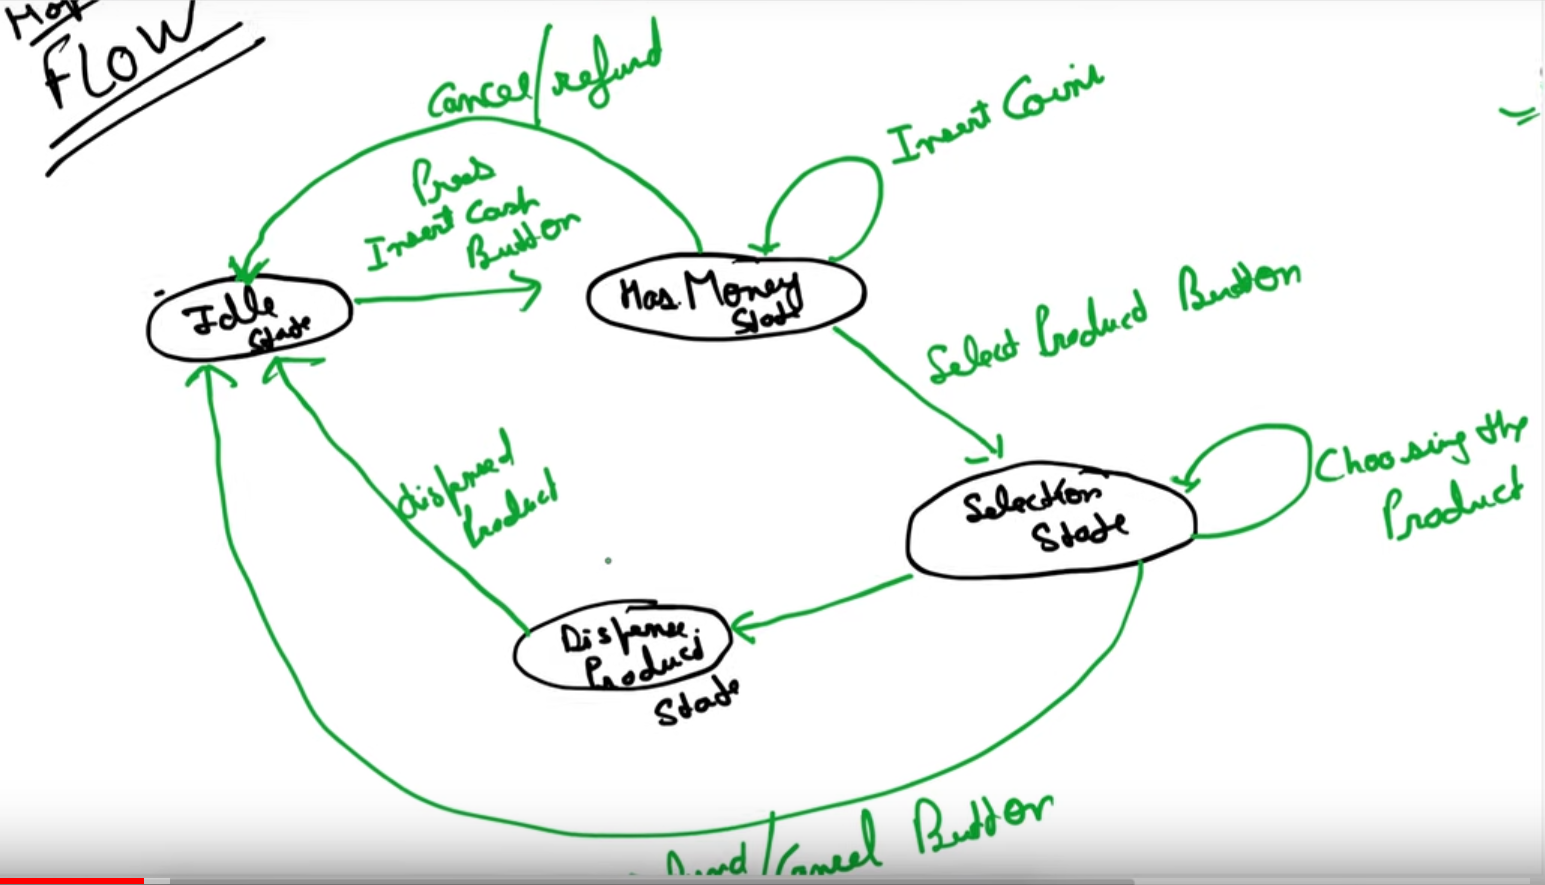 FLOW
Cancel/refund
Insert Coins
Press
Insert Cash
Button
Idle
State
Has Money
State
Select Product Button
Selection
State
Choosing the
Product
Dispensed
Product
Dispense
Product
State
/Cancel Button